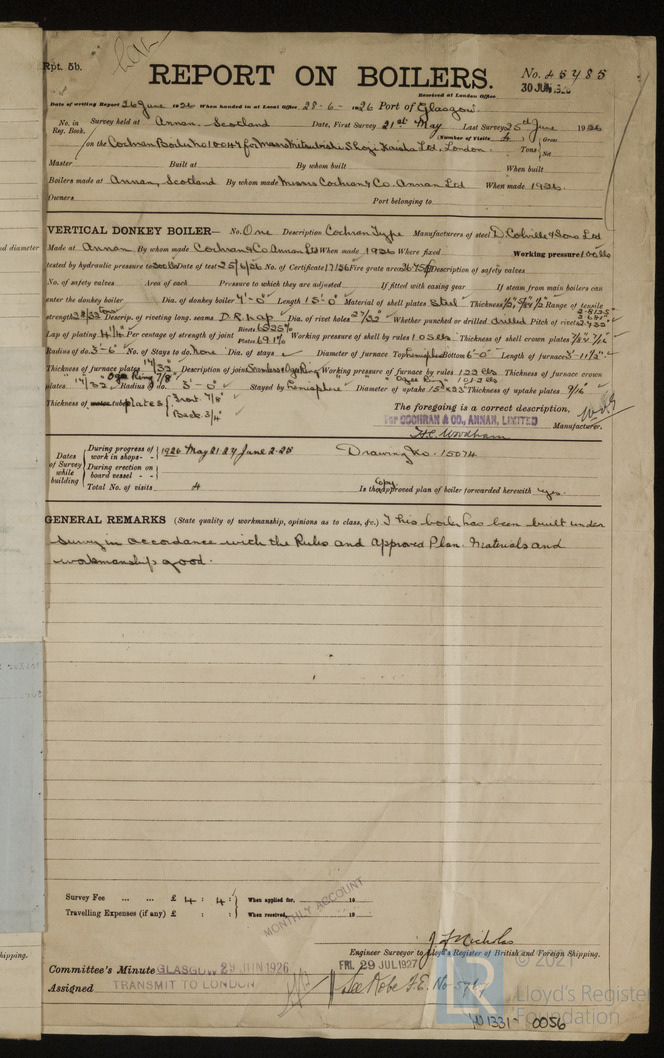 Rpt. 5b.
REPORT ON BOILERS.
No. 45485
Received at London Office 30 JUN 1926
Date of writing Report 26 June 1926 When handed in at Local Office 28-6-1926 Port of Glasgow.
No. in Reg. Book. Survey held at Annan. Scotland Date, First Survey 21st May Last Survey 25th June 1926
(Number of Visits 4) Gross Tons Net
on the Cochran Boiler No 10047 for Messrs Mitsubishi Shoji Kaisha Ltd. London.
Master Built at By whom built When built
Boilers made at Annan, Scotland By whom made Messrs Cochran & Co. Annan Ltd When made 1926.
Owners Port belonging to
VERTICAL DONKEY BOILER— No. One Description Cochran Type Manufacturers of steel D. Colville & Sons Ltd
Made at Annan By whom made Cochran & Co Annan Ltd When made 1926 Where fixed Working pressure 100 lbs
tested by hydraulic pressure to 200 lbs Date of test 25/6/26 No. of Certificate 17136 Fire grate area Description of safety valves
No. of safety valves Area of each Pressure to which they are adjusted If fitted with easing gear If steam from main boilers can
enter the donkey boiler Dia. of donkey boiler 7'-0" Length 15'-0" Material of shell plates Steel Thickness Range of tensile
strength 28/32 tons Descrip. of riveting long. seams D.R. Lap Dia. of rivet holes 27/32" Whether punched or drilled drilled Pitch of rivets
Lap of plating 4 1/4" Per centage of strength of joint Rivets Plates 69.1% Working pressure of shell by rules 105 lbs Thickness of shell crown plates
Radius of do. 3'-6" No. of Stays to do. None Dia. of stays Diameter of furnace Top Hemisphere Bottom 6'-0" Length of furnace 3'-11 1/2"
Thickness of furnace plates 17/32" Description of joint Seamless & Ogee Ring Working pressure of furnace by rules 122 lbs Thickness of furnace crown
plates 17/32" Ogee Ring 7/8" Radius of do. 3'-0" Stayed by Hemisphere Diameter of uptake Thickness of uptake plates 9/16"
Thickness of water tubes plates Front 7/8" Back 3/4"
The foregoing is a correct description,
For COCHRAN & CO., ANNAN, LIMITED
Manufacturer.
Dates of Survey while building
During progress of work in shops - - 1926 May 21. 27 June 2. 25 Drawing No. 15074
During erection on board vessel - -
Total No. of visits 4 Is the approved plan of boiler forwarded herewith Copy yes.
GENERAL REMARKS (State quality of workmanship, opinions as to class, &c.) This boiler has been built under
survey in accordance with the Rules and Approved Plan. Materials and
workmanship good.
Survey Fee ... ... £ 4 : 4 : When applied for, 19
Travelling Expenses (if any) £ : : When received, 19
MONTHLY ACCOUNT
J. F. Nicholas
Engineer Surveyor to Lloyd's Register of British and Foreign Shipping.
Committee's Minute GLASGOW 29 JUN 1926 FRI. 29 JUL 1927
Assigned TRANSMIT TO LONDON See Kobe F.E. No
© 2021
LR
Lloyd's Register
Foundation
W1331-0056